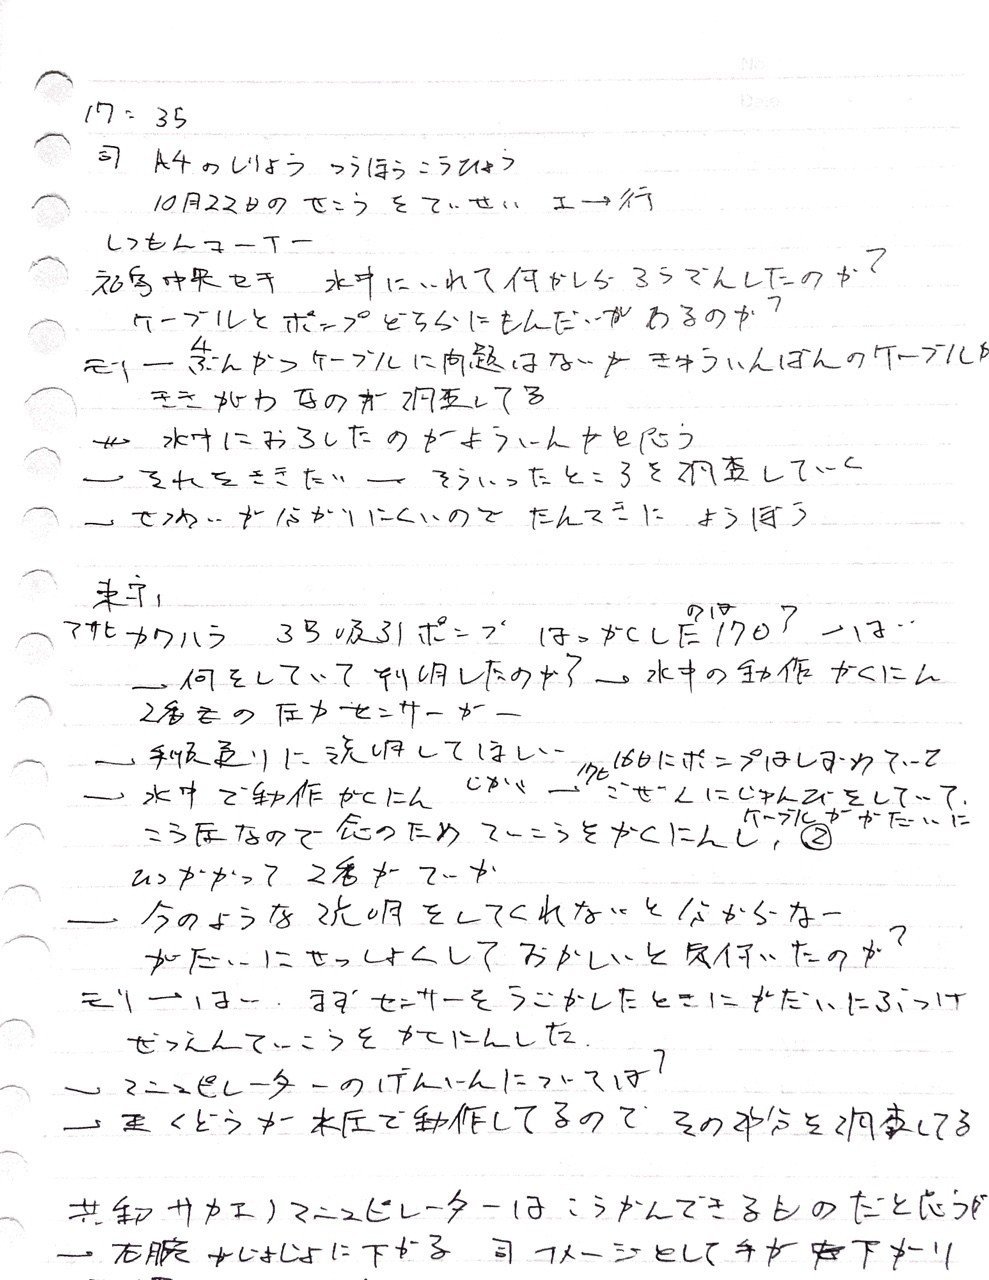 17:35
司 A4のしりょう つうほうこうひょう
10月22日の せこう をていせい 工→行
しつもんコーナー
福島中央セキ 水中にいれて何かしら ろうでんしたのか?
ケーブルとポンプどちらにもんだいがあるのか?
モリー 4ぶんかつケーブルに問題はないが きゅういんばんのケーブルか
ききがわなのか調査してる
水中におろしたのがよういんかと思う
→ それをききたい → そういったところを調査していく
→ せつめいが分かりにくいので たんてきに ようぼう
アサヒ カワハラ 3号吸引ポンプ はっかくしたのは 17日? →は…
→ 何をしていて判明したのか? → 水中の動作かくにん
2番目の圧力センサーが
→ 手順通りに説明してほしい 16日にポンプはしずめていて
→ 水中で動作かくにん 17日 ごぜんにじゅんびをしていて、
こう圧なので念のため ていこうをかくにんし、② ケーブルががたいに
ひっかかって 2番がていか
→ 今のような説明をしてくれないと分からない
がたいにせっしょくしておかしいと気付いたのか?
モリー →は… まずセンサーをうごかしたときにがたいにぶつけ
ぜつえんていこうをかくにんした.
→ マニュピレーターのげんいんについては?
→ 重くどうか水圧で動作してるので その部分を調査してる
共同 サカエノ マニュピレーターは こうかんできるものだと思うが
→ 右腕がじょじょに下がる 司 イメージとして手が 下がり